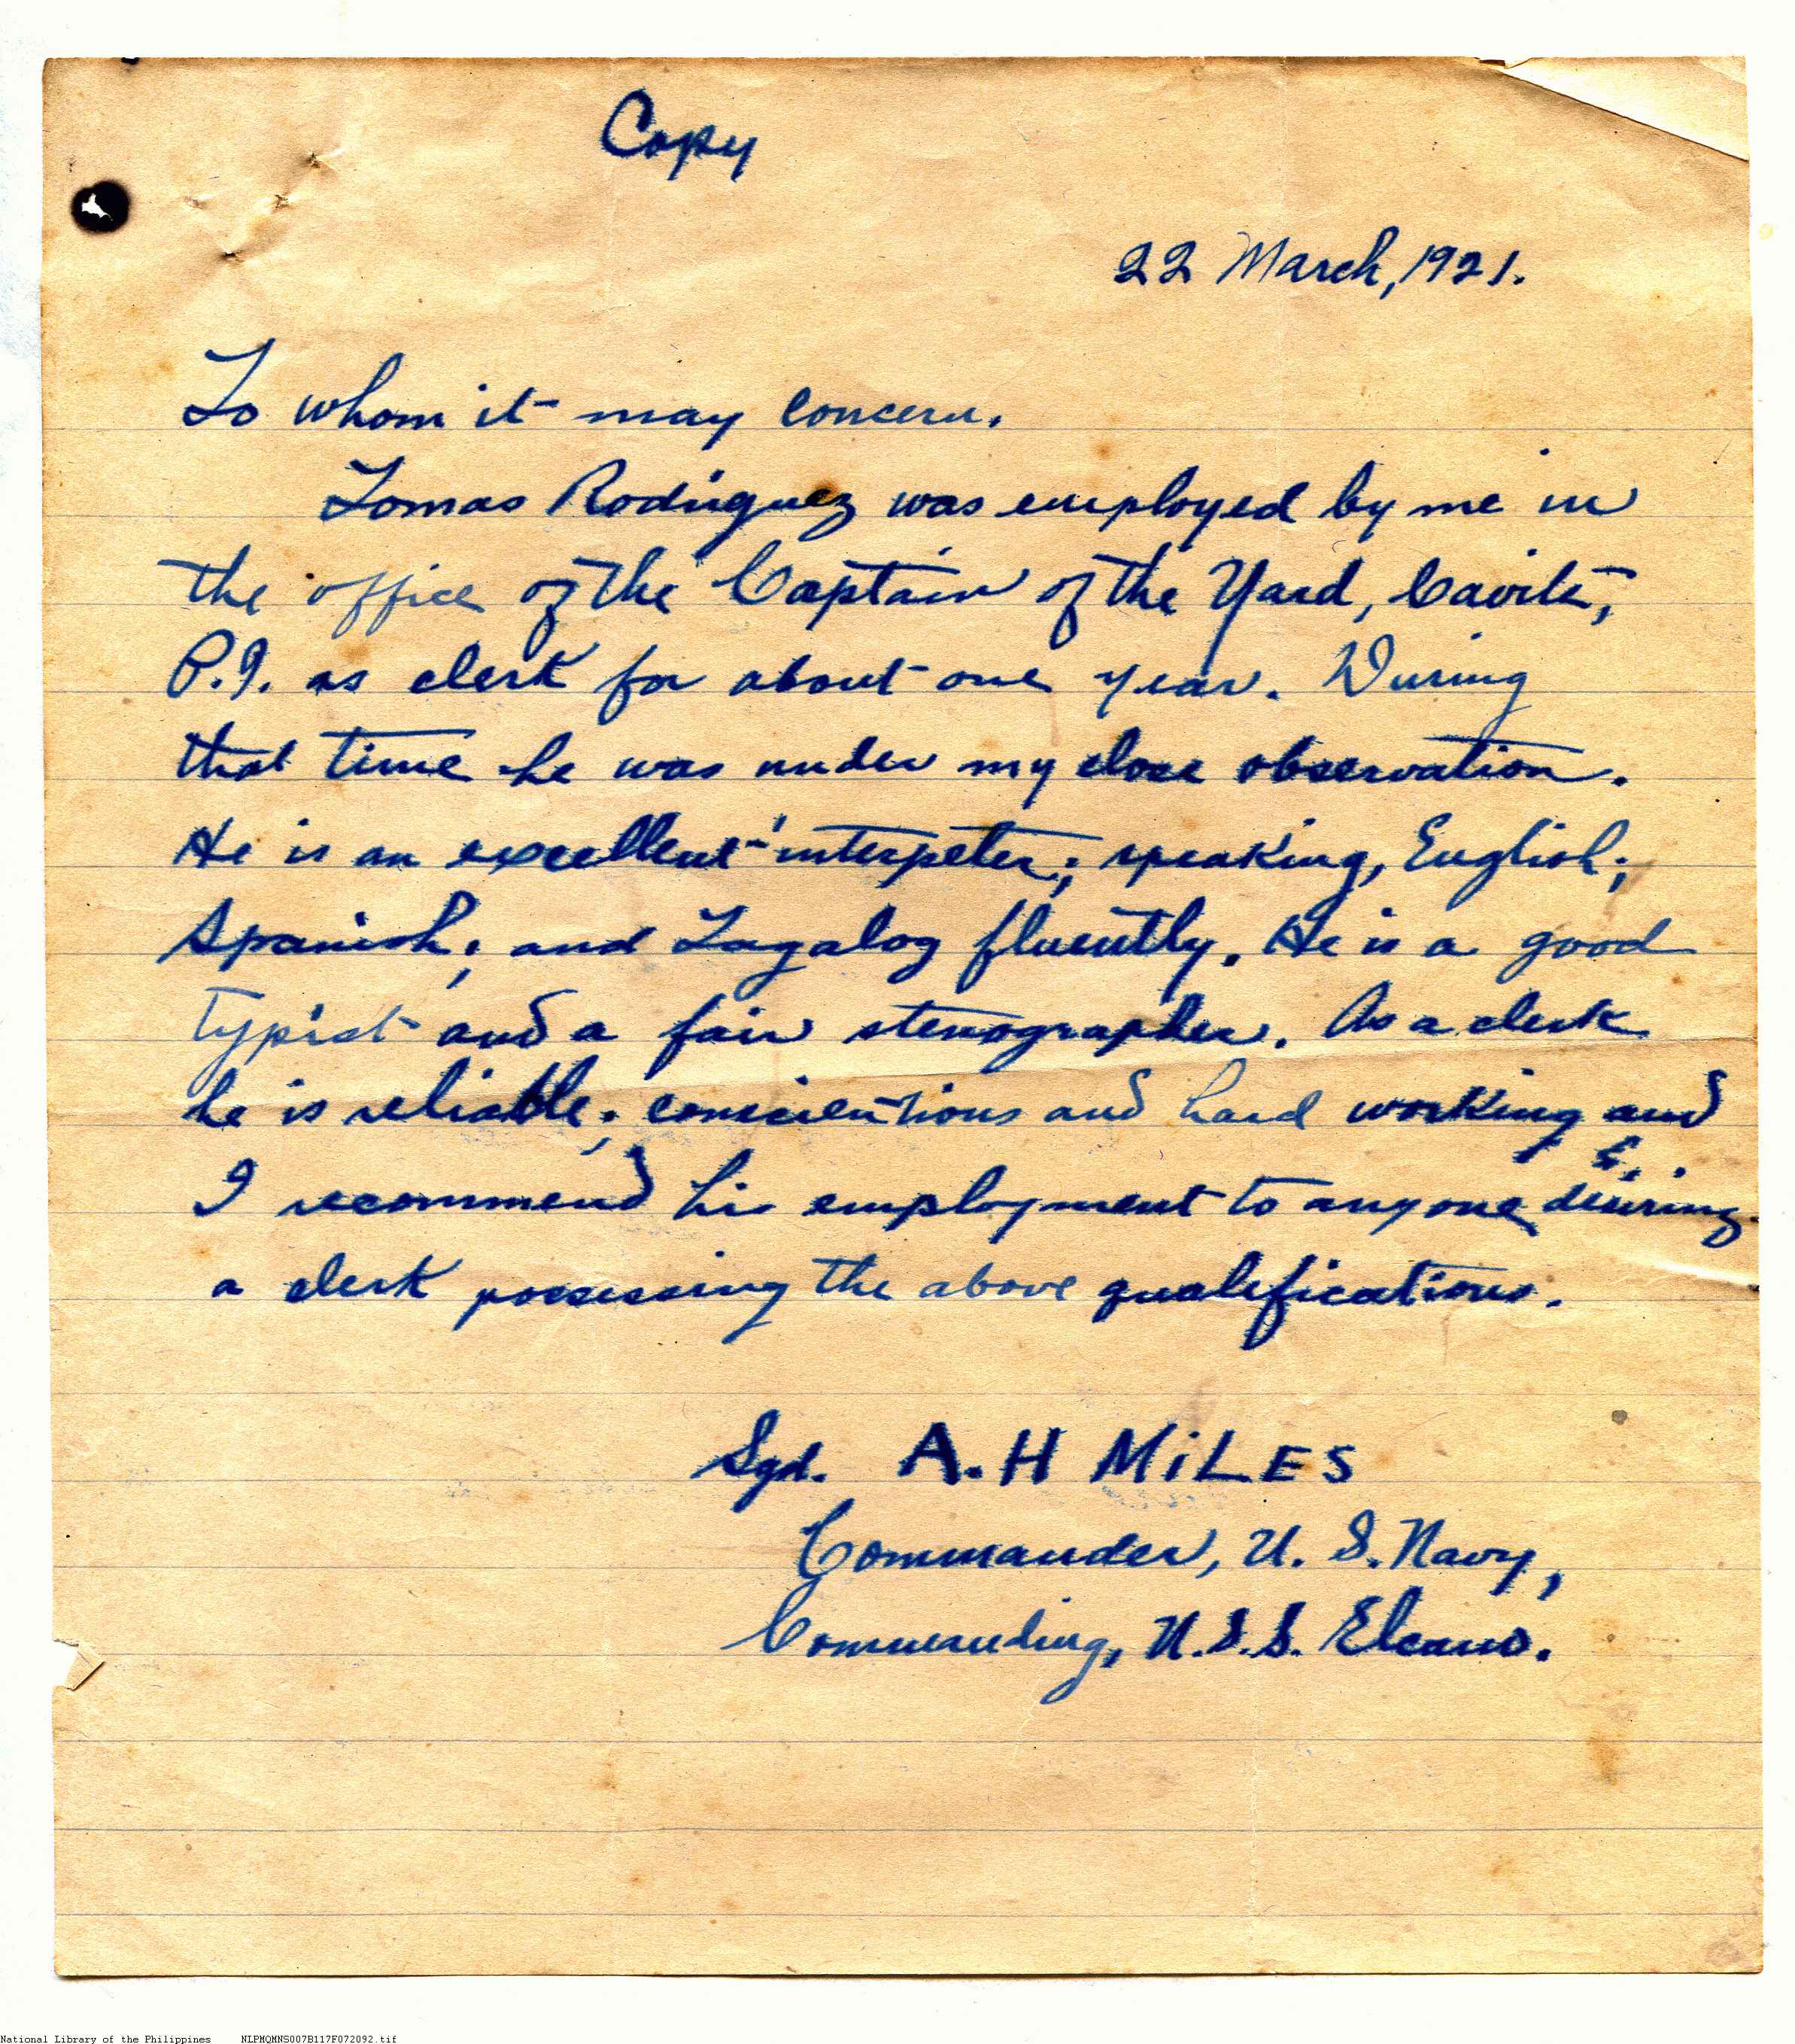 Copy
22 March, 1921.
To whom it may concern.
Tomas Rodriguez was employed by me in
the office of the Captain of the Yard, Cavite,
P.I. as clerk for about one year. During
that time he was under my close observation.
He is an excellent interpeter; speaking, English;
Spanish; and Tagalog fluently. He is a good
typist and a fair stenographer. As a clerk
he is reliable; conscientious and hard working and
I recommend his employment to anyone desiring
a clerk possessing the above qualifications.
Sgd. A. H MiLES
Commander, U. S. Navy,
Commanding, U.S.S. Elcano.
National Library of the Philippines NLPMQMNS007B117F072092.tif